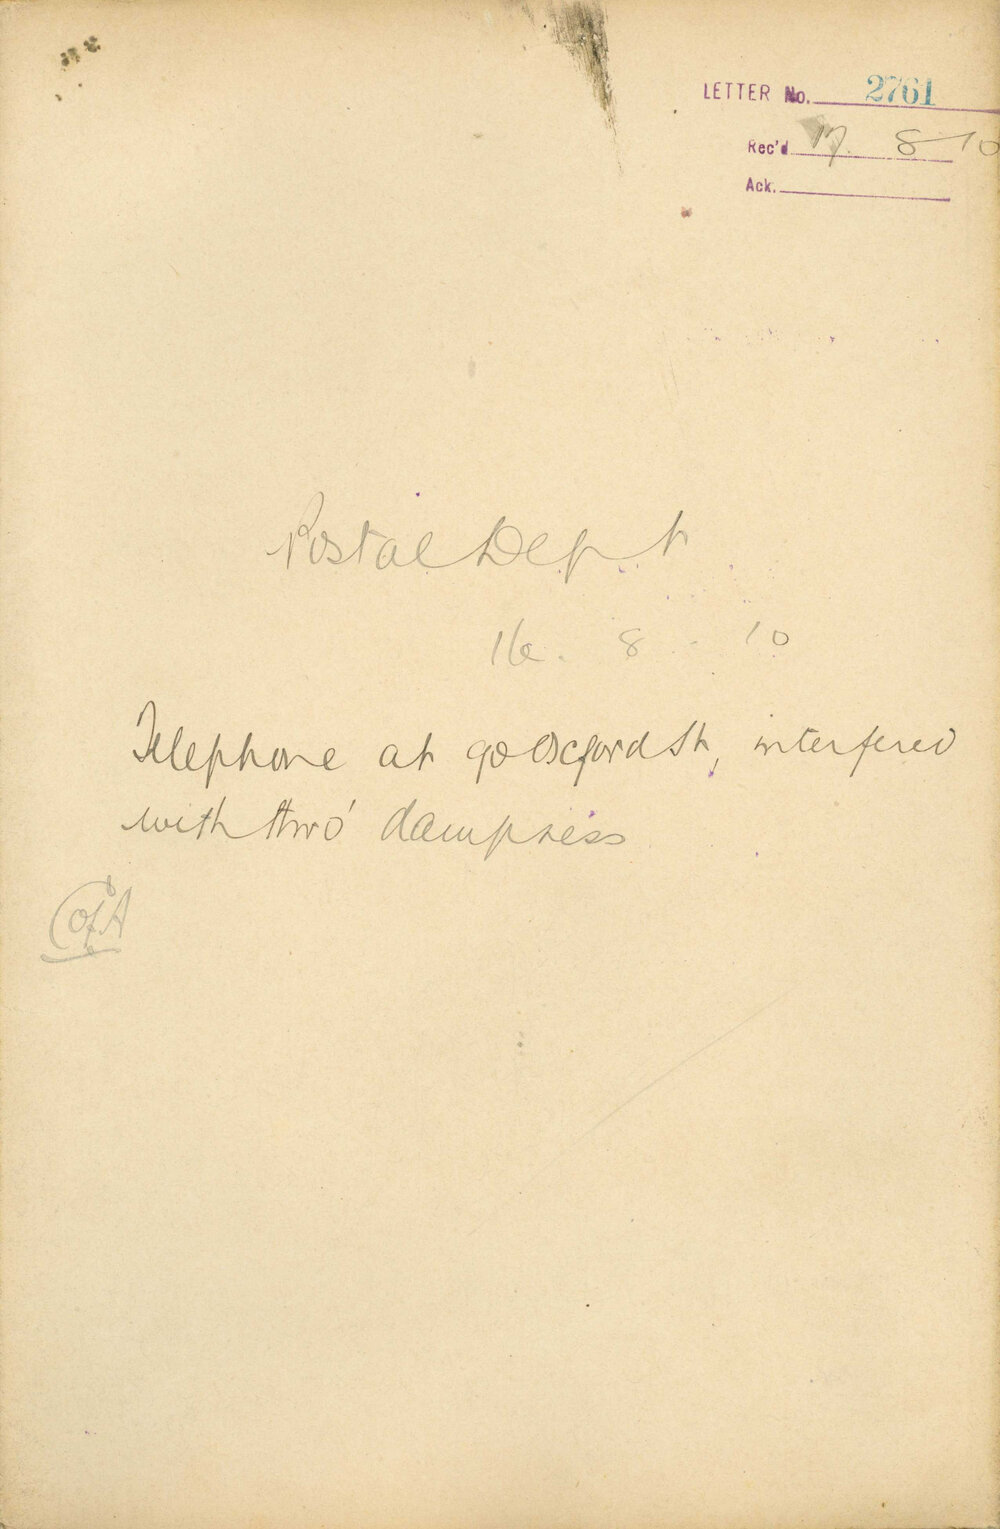 LETTER No. 2761
Rec'd 17. 8 10
Ack.
Postal Dept
16. 8. 10
Telephone at 90 Oxford St, interfered
with thro' dampness
C of A